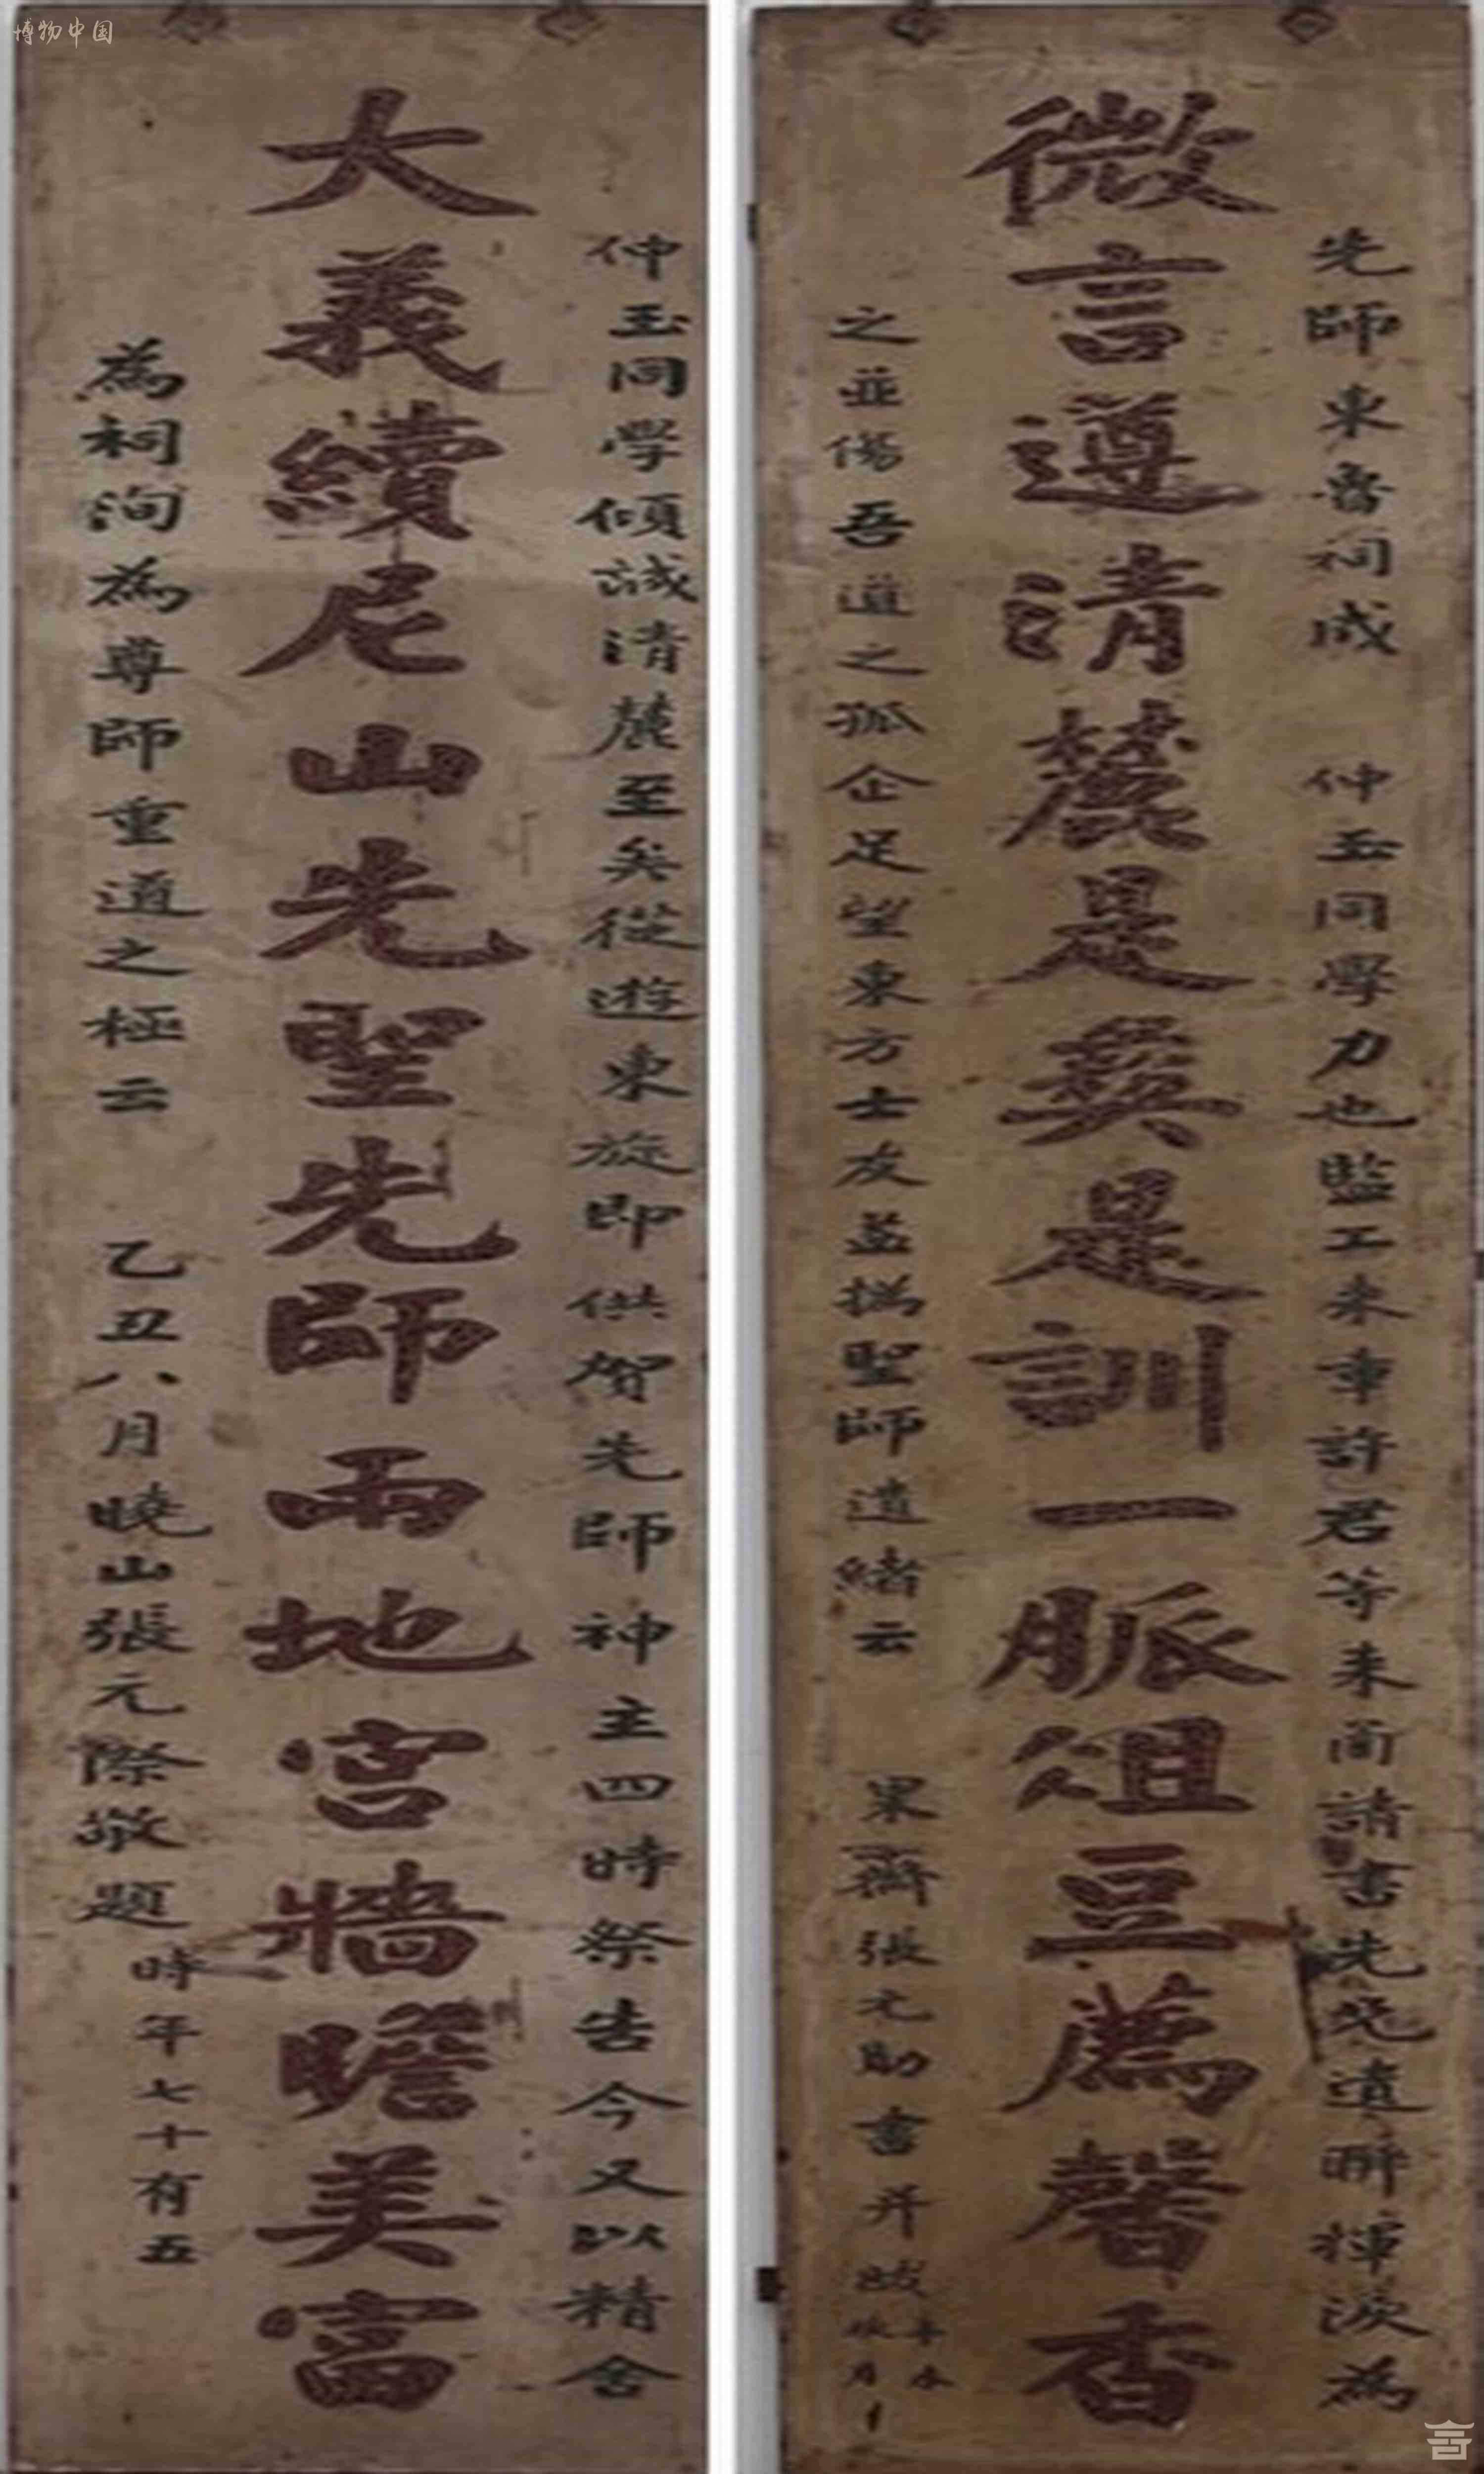 博物中国
先師東魯祠成 仲玉同學力也監工未率許君等來南請書先兄遺聯揮淚為
微言遵清麓是彝是訓一脈俎豆薦馨香
之並傷吾道之孤企足望東方士友益撝聖師遺緒云 果齋張元勛書并跋
仲玉同學傾誠清麓至矣從遊東旋即供賀先師神主四時祭告今又以精舍
大義續尼山先聖先師兩地宮牆瞻美富
為祠洵為尊師重道之極云 乙丑八月曉山張元際敬題時年七十有五